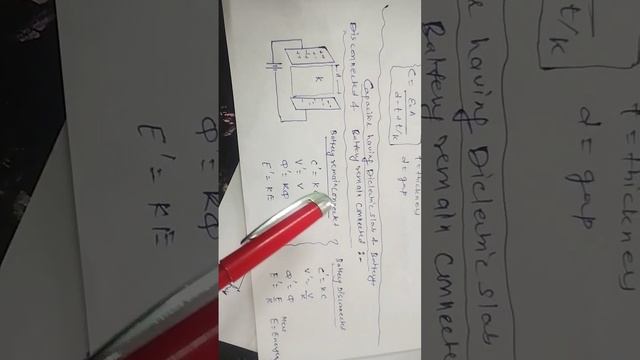 t = thickness
d = gap
C = ε₀A / d-t+t/k
Capacitor having Dielectric slab & Battery
Disconnected & Battery remain connected :-
K
Battery remain connected
C' = K
V' = V
Φ' = KΦ
E' = KE
Battery Disconnected
C' = KC
V' = V/K
Φ' = Φ
E' = E/K
Here
E = Energy
t/k
t = thickness
d = gap
e having Dielectric slab
Battery remain connecte
Φ = KΦ
E' = KE